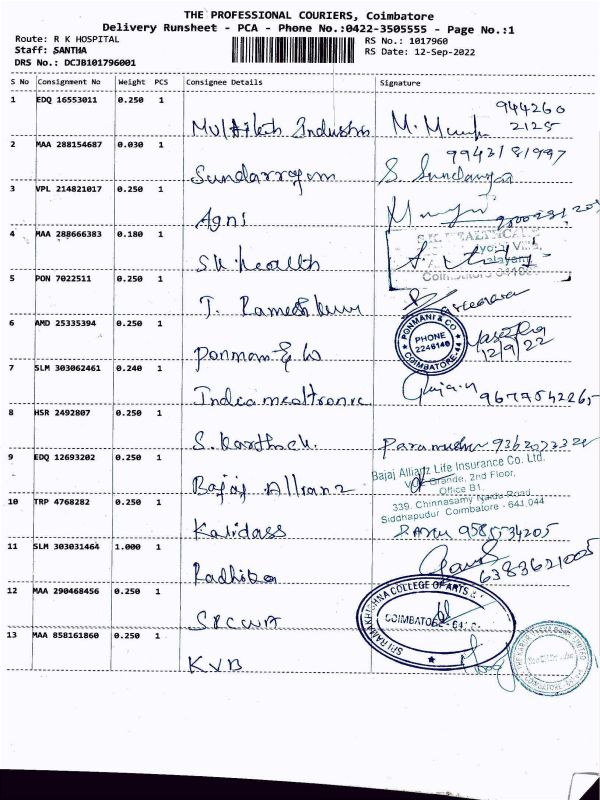 THE PROFESSIONAL COURIERS, Coimbatore
Delivery Runsheet - PCA - Phone No.:0422-3505555 - Page No.:1
Route: R K HOSPITAL
Staff: SANTHA
DRS No.: DCJB101796001
RS No.: 1017960
RS Date: 12-Sep-2022
S No Consignment No Weight PCS Consignee Details Signature
1 EDQ 16553011 0.250 1
944260
2125
2 MAA 288154687 0.030 1
3 VPL 214821017 0.250 1 Agni
4 MAA 288666383 0.180 1 S.K. health
5 PON 7022511 0.250 1 T. Rameshkumar
6 AMD 25335394 0.250 1
PONMANI & CO
PHONE
2246140
COIMBATORE-44
12/9/22
7 SLM 303062461 0.240 1 Indcamealtronic
8 HSR 2492807 0.250 1 S. Karthick.
9 EDQ 12693202 0.250 1 Bajaj Allianz
Bajaj Allianz Life Insurance Co. Ltd.
Grande, 2nd Floor,
Office B1,
339, Chinnasamy Naidu Road,
Siddhapudur Coimbatore - 641 044
10 TRP 4768282 0.250 1 Kalidass
9585534205
11 SLM 303031464 1.000 1 Radhika
6383621005
12 MAA 290468456 0.250 1
SRI RAMAKRISHNA COLLEGE OF ARTS &
COIMBATORE - 641
13 MAA 858161860 0.250 1 KVB